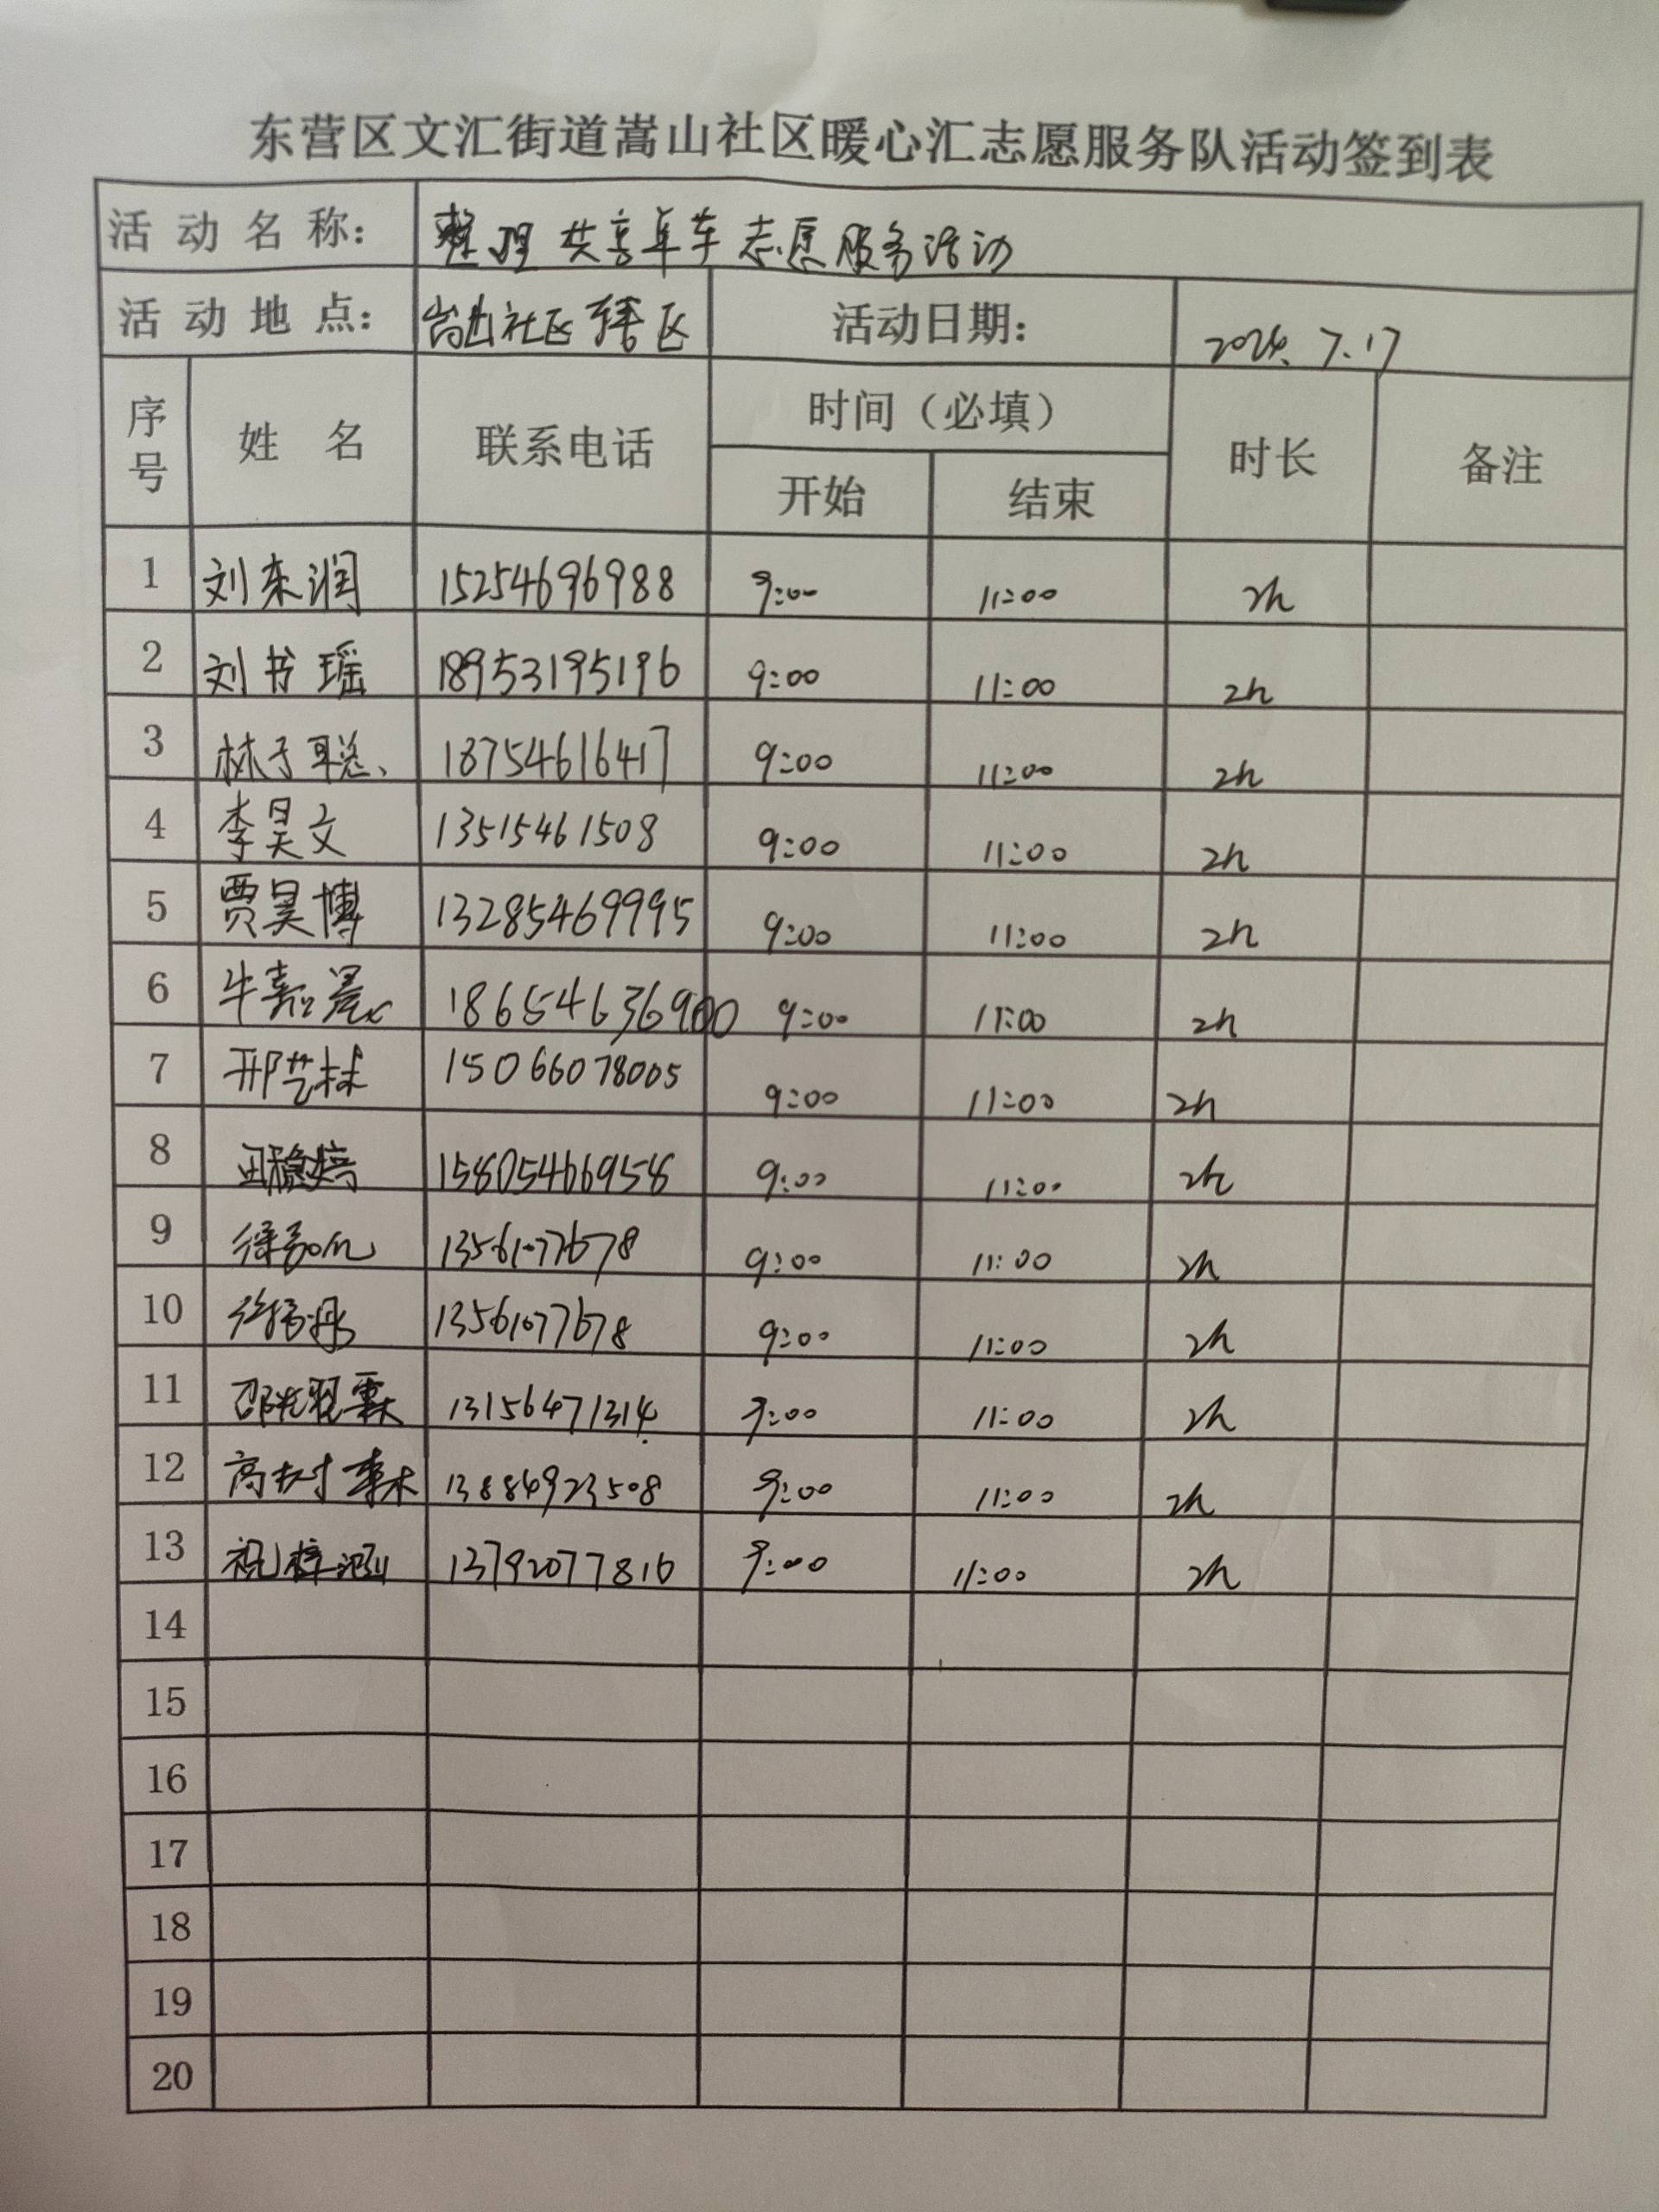 东营区文汇街道嵩山社区暖心汇志愿服务队活动签到表
活动名称： 整理共享单车志愿服务活动
活动地点： 嵩山社区辖区 活动日期： 2024.7.17
序号 姓名 联系电话 时间（必填） 时长 备注
开始 结束
1 刘东润 15254696988 9:00 11:00 2h
2 刘书瑶 18953195196 9:00 11:00 2h
3 林子聪 18754616417 9:00 11:00 2h
4 李昊文 13515461508 9:00 11:00 2h
5 贾昊博 13285469995 9:00 11:00 2h
6 牛嘉晨 18654636900 9:00 11:00 2h
7 邢艺林 15066078005 9:00 11:00 2h
8 15805466958 9:00 11:00 2h
9 13561077678 9:00 11:00 2h
10 13561077678 9:00 11:00 2h
11 13156471314 9:00 11:00 2h
12 13884923508 9:00 11:00 2h
13 13792077816 9:00 11:00 2h
14
15
16
17
18
19
20